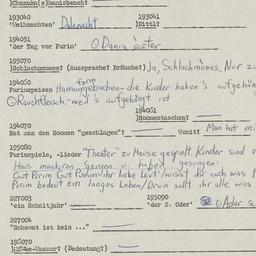 )Chanuku(s)hanisbeach?
193040 193041
'Weihnachten' Dalenacht )Nittl?
194051
'der Tag vor Purim' Danis
195070
)Schlachmoones? (Aussprache? Bräuche?) Ja, Schlachmones, Nur zu
194060
Purimspeisen Hamangebachen - die Kinder haben's aufgehän
Rauchfleisch, weil's aufgehängt ist
194061
)Hoomentaschen?
194070
Hat man den Hoomen "geschlagen"? Womit? Man hat mit
195080
Purimspiele, -lieder "Theater" zu Hause gespielt. Kinder sind v
Haus maskieren gangen u. haben gesungen:
Gut Purim Gut Purim ihr liebe Leut! / wisst ihr auch was P
Purim bedeut ein langes Leben / Drum sollt ihr alle was
227003 195090
'ein Schaltjahr' 'der 2. Oder' Adar
227004
"Schevat ist kein ..."
196070
(Bedeutung?)